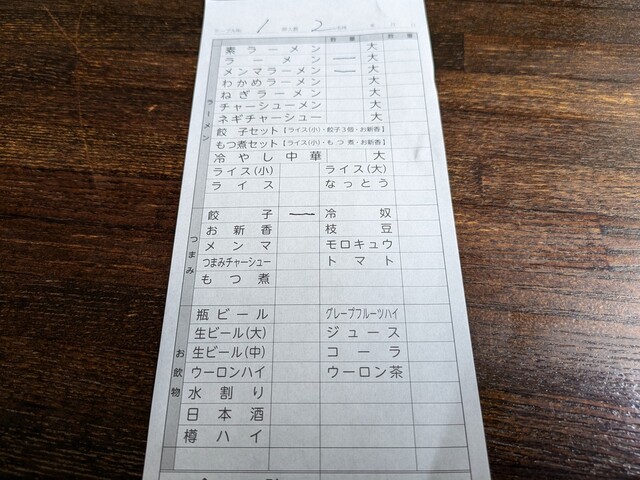 テーブルNo. 1 御人数 2 名様 年 月 日
数量 数量
ラーメン
素ラーメン 大
ラーメン 一 大
メンマラーメン 一 大
わかめラーメン 大
ねぎラーメン 大
チャーシューメン 大
ネギチャーシュー 大
餃子セット【ライス(小)・餃子3個・お新香】
もつ煮セット【ライス(小)・もつ煮・お新香】
冷やし中華 大
ライス(小) ライス(大)
ライス なっとう
つまみ
餃子 一 冷奴
お新香 枝豆
メンマ モロキュウ
つまみチャーシュー トマト
もつ煮
お飲物
瓶ビール グレープフルーツハイ
生ビール(大) ジュース
生ビール(中) コーラ
ウーロンハイ ウーロン茶
水割り
日本酒
樽ハイ